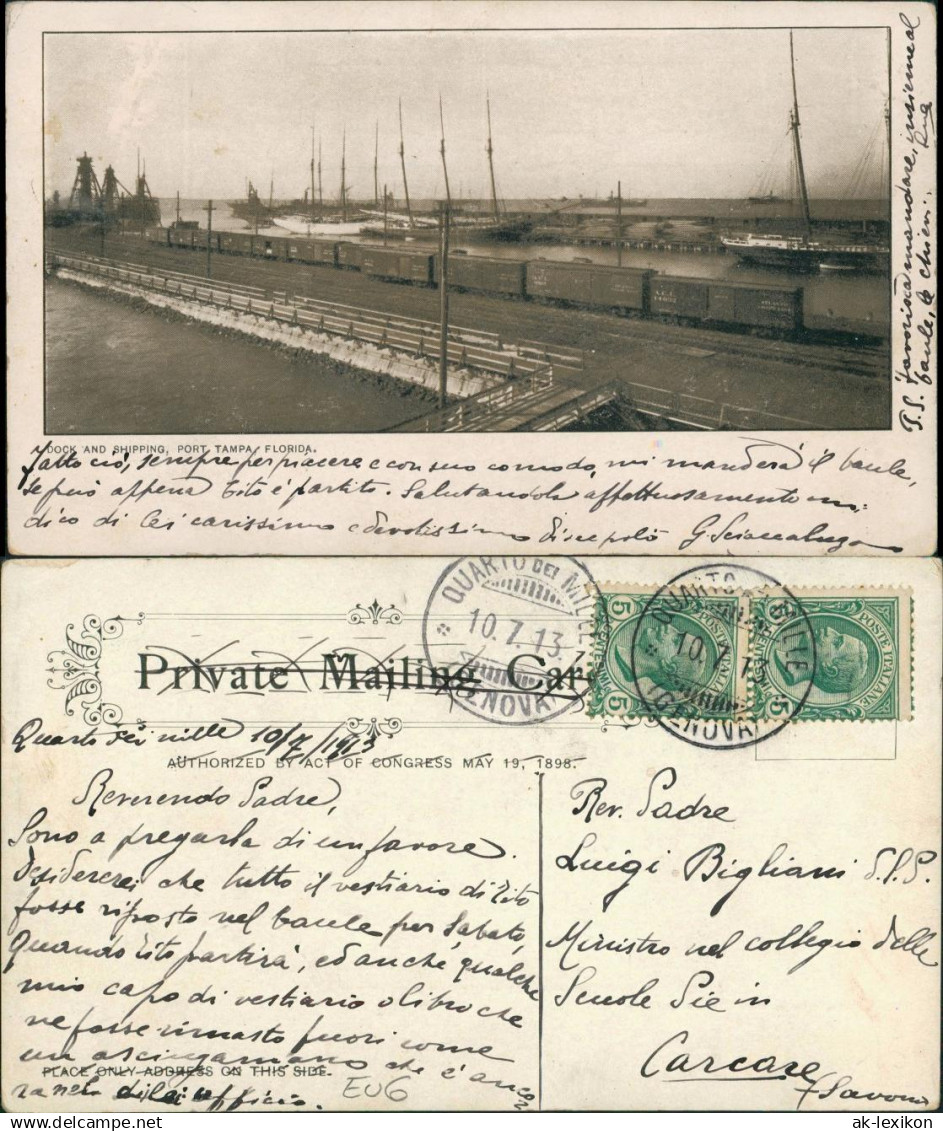 P.S. Favorisca mandare, insieme al
baule, le chiavi.
DOCK AND SHIPPING, PORT TAMPA, FLORIDA.
Fatto ciò, sempre per piacere e con suo comodo, mi manderà il baule,
se può appena Tito è partito. Salutandola affettuosamente mi
dico di Lei carissimo e devotissimo discepolo G.
QUARTO DEI MILLE
10.7.13
(GENOVA)
QUARTO DEI MILLE
10.7.13
(GENOVA)
5 POSTE ITALIANE 5
5 POSTE ITALIANE 5
Private Mailing Card
Quarto dei mille 10/7/1913
AUTHORIZED BY ACT OF CONGRESS MAY 19, 1898.
Reverendo Padre,
Sono a pregarla di un favore.
Desidererei che tutto il vestiario di Tito
fosse riposto nel baule per Sabato,
quando Tito partirà, ed anche qualche
mio capo di vestiario o libro che
ne fosse rimasto fuori come
un asciugamano che c'è ancora
PLACE ONLY ADDRESS ON THIS SIDE.
nel di lei ufficio.
EU6
Rev. Padre
Luigi Bigliani d.S.P.
Ministro nel collegio delle
Scuole Pie in
Carcare
(Savona)
ak-lexikon